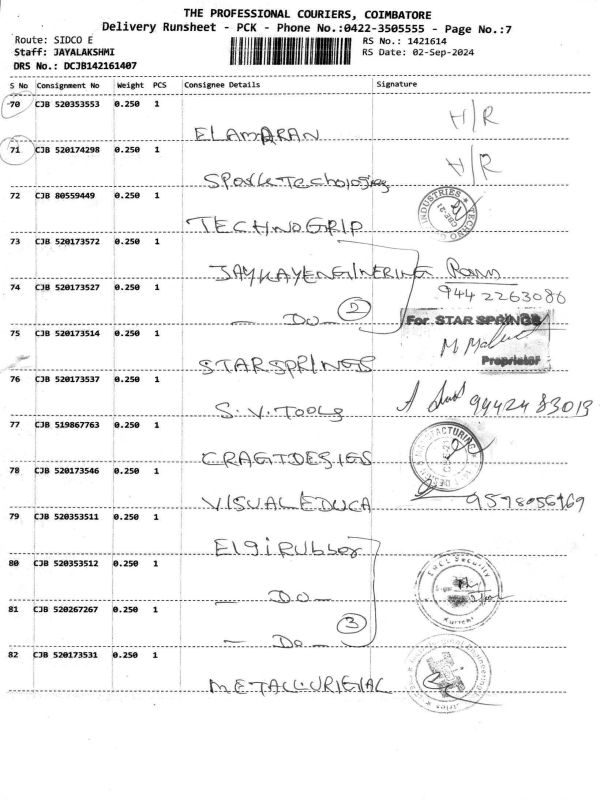 THE PROFESSIONAL COURIERS, COIMBATORE
Delivery Runsheet - PCK - Phone No.:0422-3505555 - Page No.:7
Route: SIDCO E
RS No.: 1421614
Staff: JAYALAKSHMI
RS Date: 02-Sep-2024
DRS No.: DCJB142161407
S No Consignment No Weight PCS Consignee Details Signature
70 CJB 520353553 0.250 1
ELAMARAN H/R
71 CJB 520174298 0.250 1
H/R
72 CJB 80559449 0.250 1
TECHNOGRIP
INDUSTRIES ★ TECHNO
CBE-21
73 CJB 520173572 0.250 1
JAYKAYENGINERING
74 CJB 520173527 0.250 1
9442263086
— DO — 2
For STAR SPRINGS
75 CJB 520173514 0.250 1
STARSPRINGS
Proprietor
76 CJB 520173537 0.250 1
S.V.TOOLS 9442483013
77 CJB 519867763 0.250 1
CRAGTDESIGS
78 CJB 520173546 0.250 1
VISUALEDUCA 9598056969
79 CJB 520353511 0.250 1
Elgi Rubber
80 CJB 520353512 0.250 1
— DO —
Security
Kurichi
81 CJB 520267267 0.250 1
— DO — 3
82 CJB 520173531 0.250 1
METALLURIGIAL